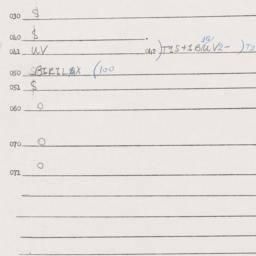 030 $
040 $
041 UV 042 ) T15+1BUV2- ) T2
050 (100
051 $
060 0
070 0
071 0